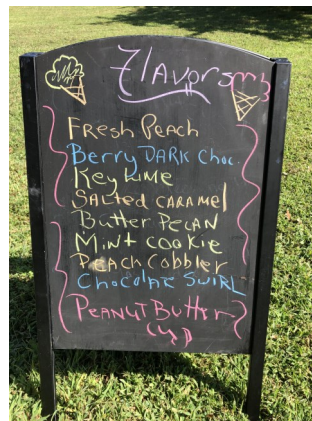 Flavors
Fresh Peach
Berry DARK Choc.
Key Lime
Salted CARAMEL
Butter Pecan
Mint cookie
Peach Cobbler
Chocolate Swirl
Peanut Butter
Cup